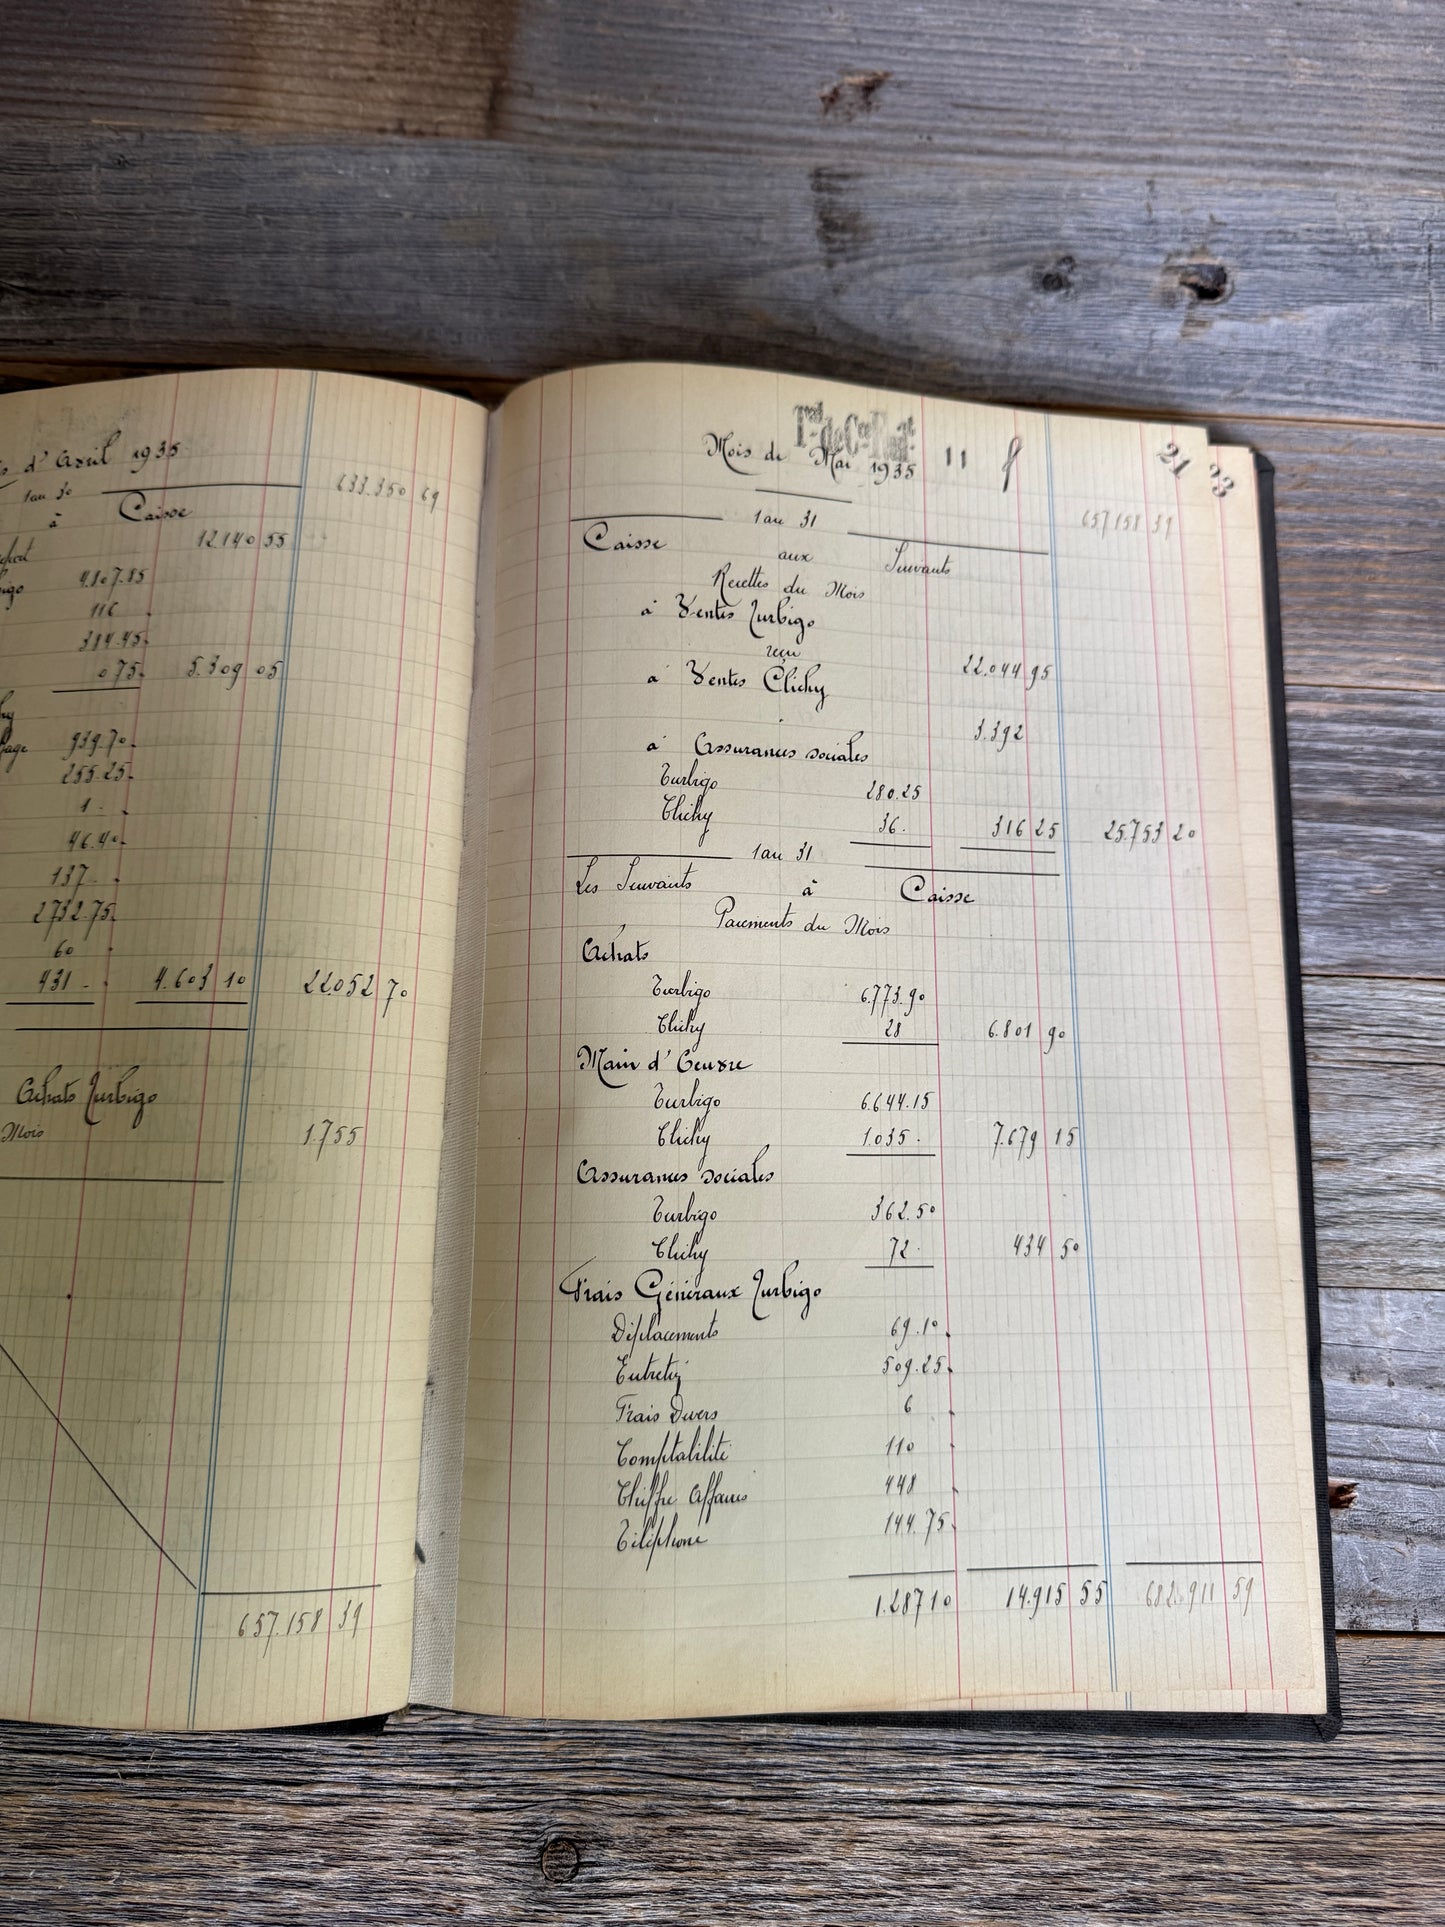 d'Avril 1935
1 au 30
633.350 69
à Caisse
12.140 55
4.807.85
116
314.45
075 5.309 05
939.70
255.25
1
46.40
137
2732.75
60
431 4.603 10 22.052 70
Achats Turbigo
Mois
1.755
657.158 39
Mois de Mai 1935 11
21 23
1 au 31
657.158 39
Caisse aux Suivants
Recettes du Mois
à Ventes Turbigo
reçu 22.044 95
à Ventes Clichy
3.392
à Assurances sociales
Turbigo 280.25
Clichy 36. 316 25 25.753 20
1 au 31
Les Suivants à Caisse
Paiements du Mois
Achats
Turbigo 6.773.90
Clichy 28 6.801 90
Main d'Oeuvre
Turbigo 6.644.15
Clichy 1.035. 7.679 15
Assurances sociales
Turbigo 362.50
Clichy 72. 434 50
Frais Généraux Turbigo
Déplacements 69.10
Entretien 509.25
Frais Divers 6
Comptabilité 110
Chiffre Affaires 448
Téléphone 144.75
1.287 10 14.915 55 682.911 59